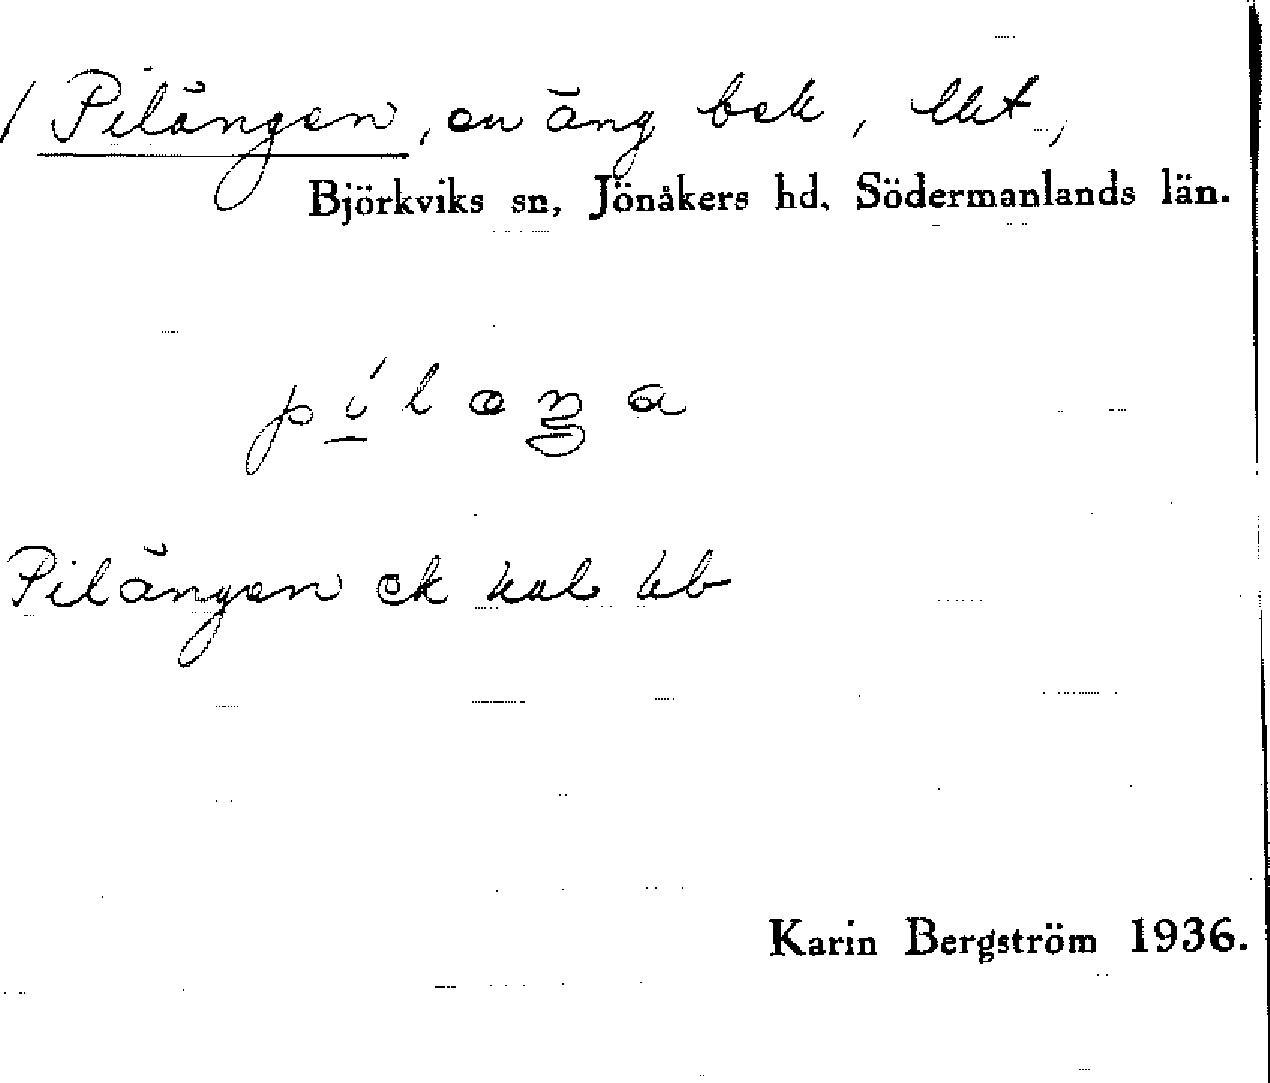 / Pilängen, en äng bek, Ekt,
Björkviks sn, Jönåkers hd. Södermanlands län.
Pilängen ek kal
Karin Bergström 1936.